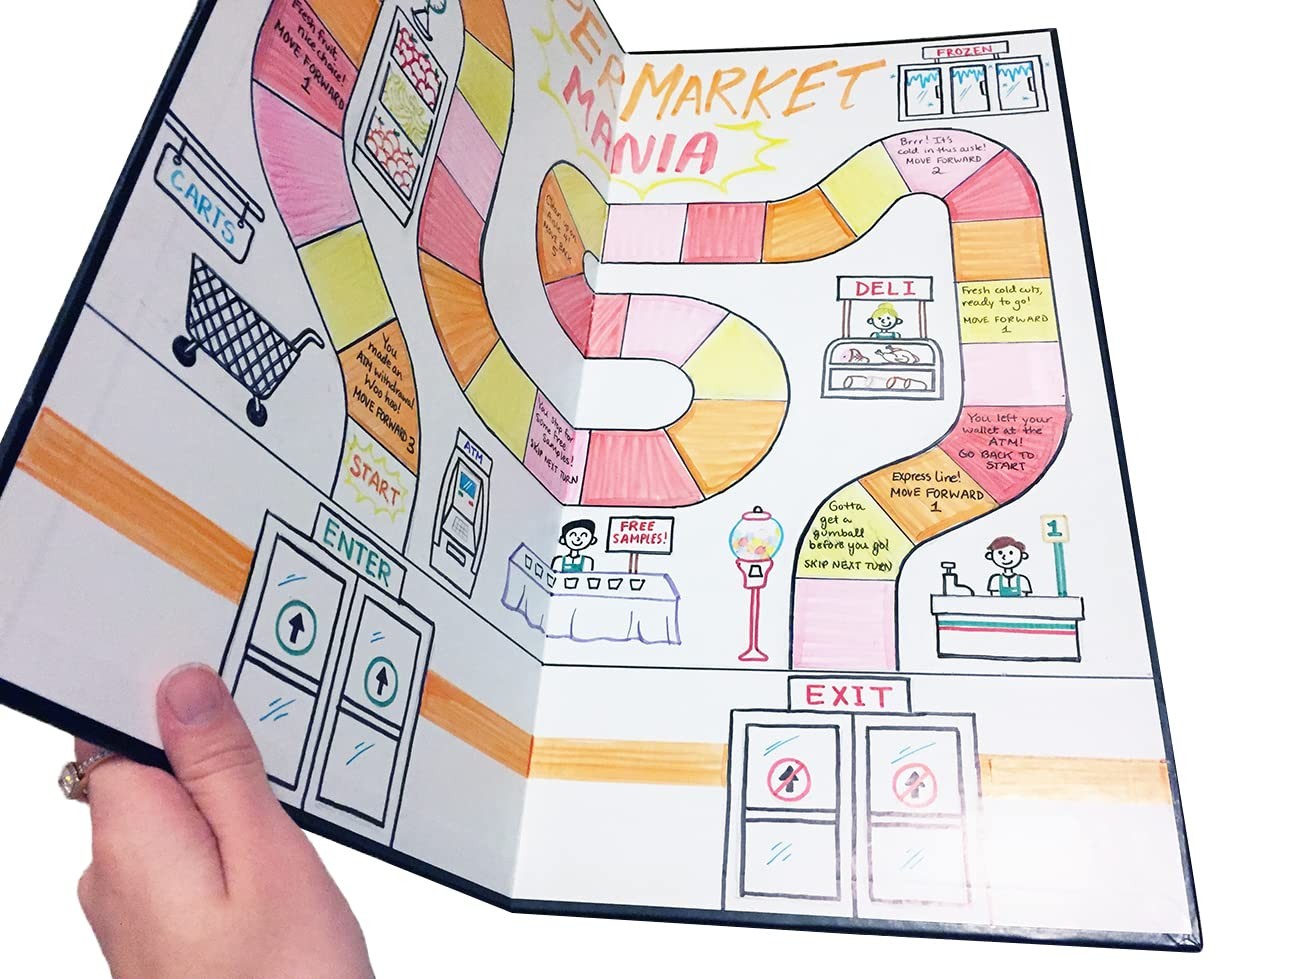 Fresh fruit,
nice choice!
MOVE FORWARD
1
CARTS
You
made an
ATM withdrawal
Woo hoo!
MOVE FORWARD 3
START
ENTER
ATM
ERMARKET
MANIA
Clean up on
aisle 4!
MOVE BACK
5
You stop for
some free
samples!
SKIP NEXT TURN
FREE
SAMPLES!
FROZEN
Brrr! It's
cold in this aisle!
MOVE FORWARD
2
DELI
Fresh cold cuts,
ready to go!
MOVE FORWARD
1
You left your
wallet at the
ATM!
GO BACK TO
START
Express line!
MOVE FORWARD
1
Gotta
get a
gumball
before you go!
SKIP NEXT TURN
1
EXIT